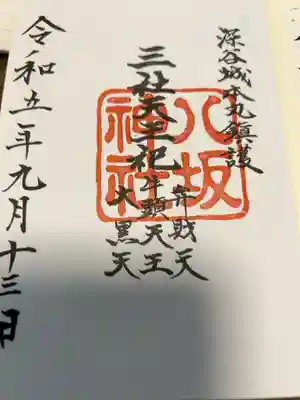 深谷城本丸鎮護
八坂
神社
弁財天
三社天王祀
牛頭天王
大黒天
令和五年九月十三日